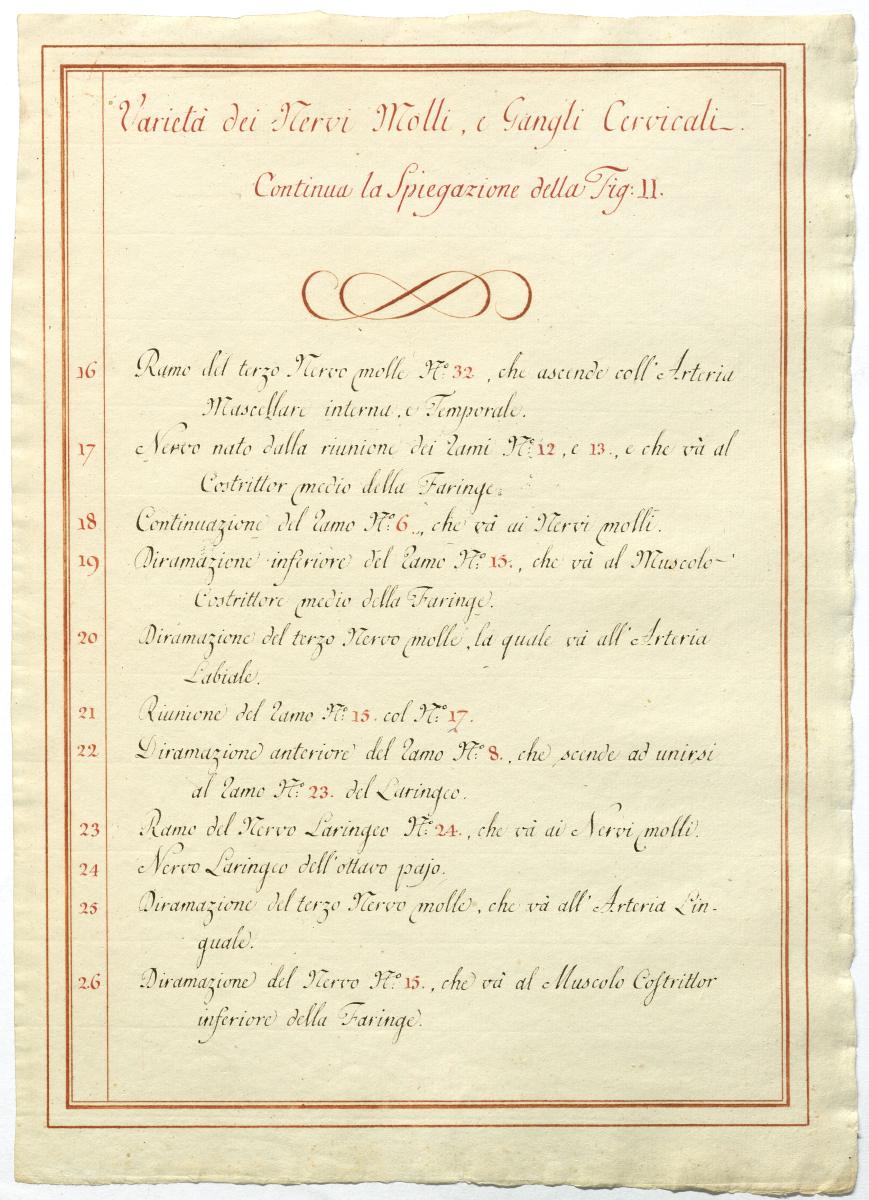 Varietà dei Nervi Molli, e Gangli Cervicali.
Continua la Spiegazione della Fig: II.
16 Ramo del terzo Nervo molle N.º 32, che ascende coll'Arteria
Mascellare interna, e Temporale.
17 Nervo nato dalla riunione dei Rami N.º 12, e 13., e che và al
Costrittor medio della Faringe.
18 Continuazione del Ramo N.º 6., che và ai Nervi molli.
19 Diramazione inferiore del Ramo N.º 15., che và al Muscolo
Costrittore medio della Faringe.
20 Diramazione del terzo Nervo molle, la quale và all'Arteria
Labiale.
21 Riunione del Ramo N.º 15. col N.º 17.
22 Diramazione anteriore del Ramo N.º 8., che scende ad unirsi
al Ramo N.º 23. del Laringeo.
23 Ramo del Nervo Laringeo N.º 24., che và ai Nervi molli.
24 Nervo Laringeo dell'ottavo pajo.
25 Diramazione del terzo Nervo molle, che và all'Arteria Lin-
guale.
26 Diramazione del Nervo N.º 15., che và al Muscolo Costrittor
inferiore della Faringe.